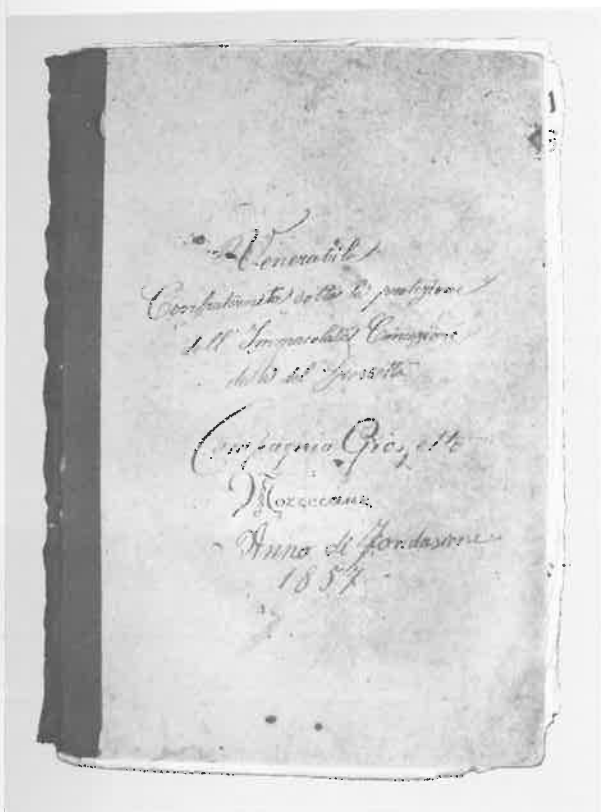 Venerabile
Confraternita sotto la protezione
dell' Immacolata Concezione
detta del
Compagnia Grossetto
Mozzecane
Anno di Fondasione
1857